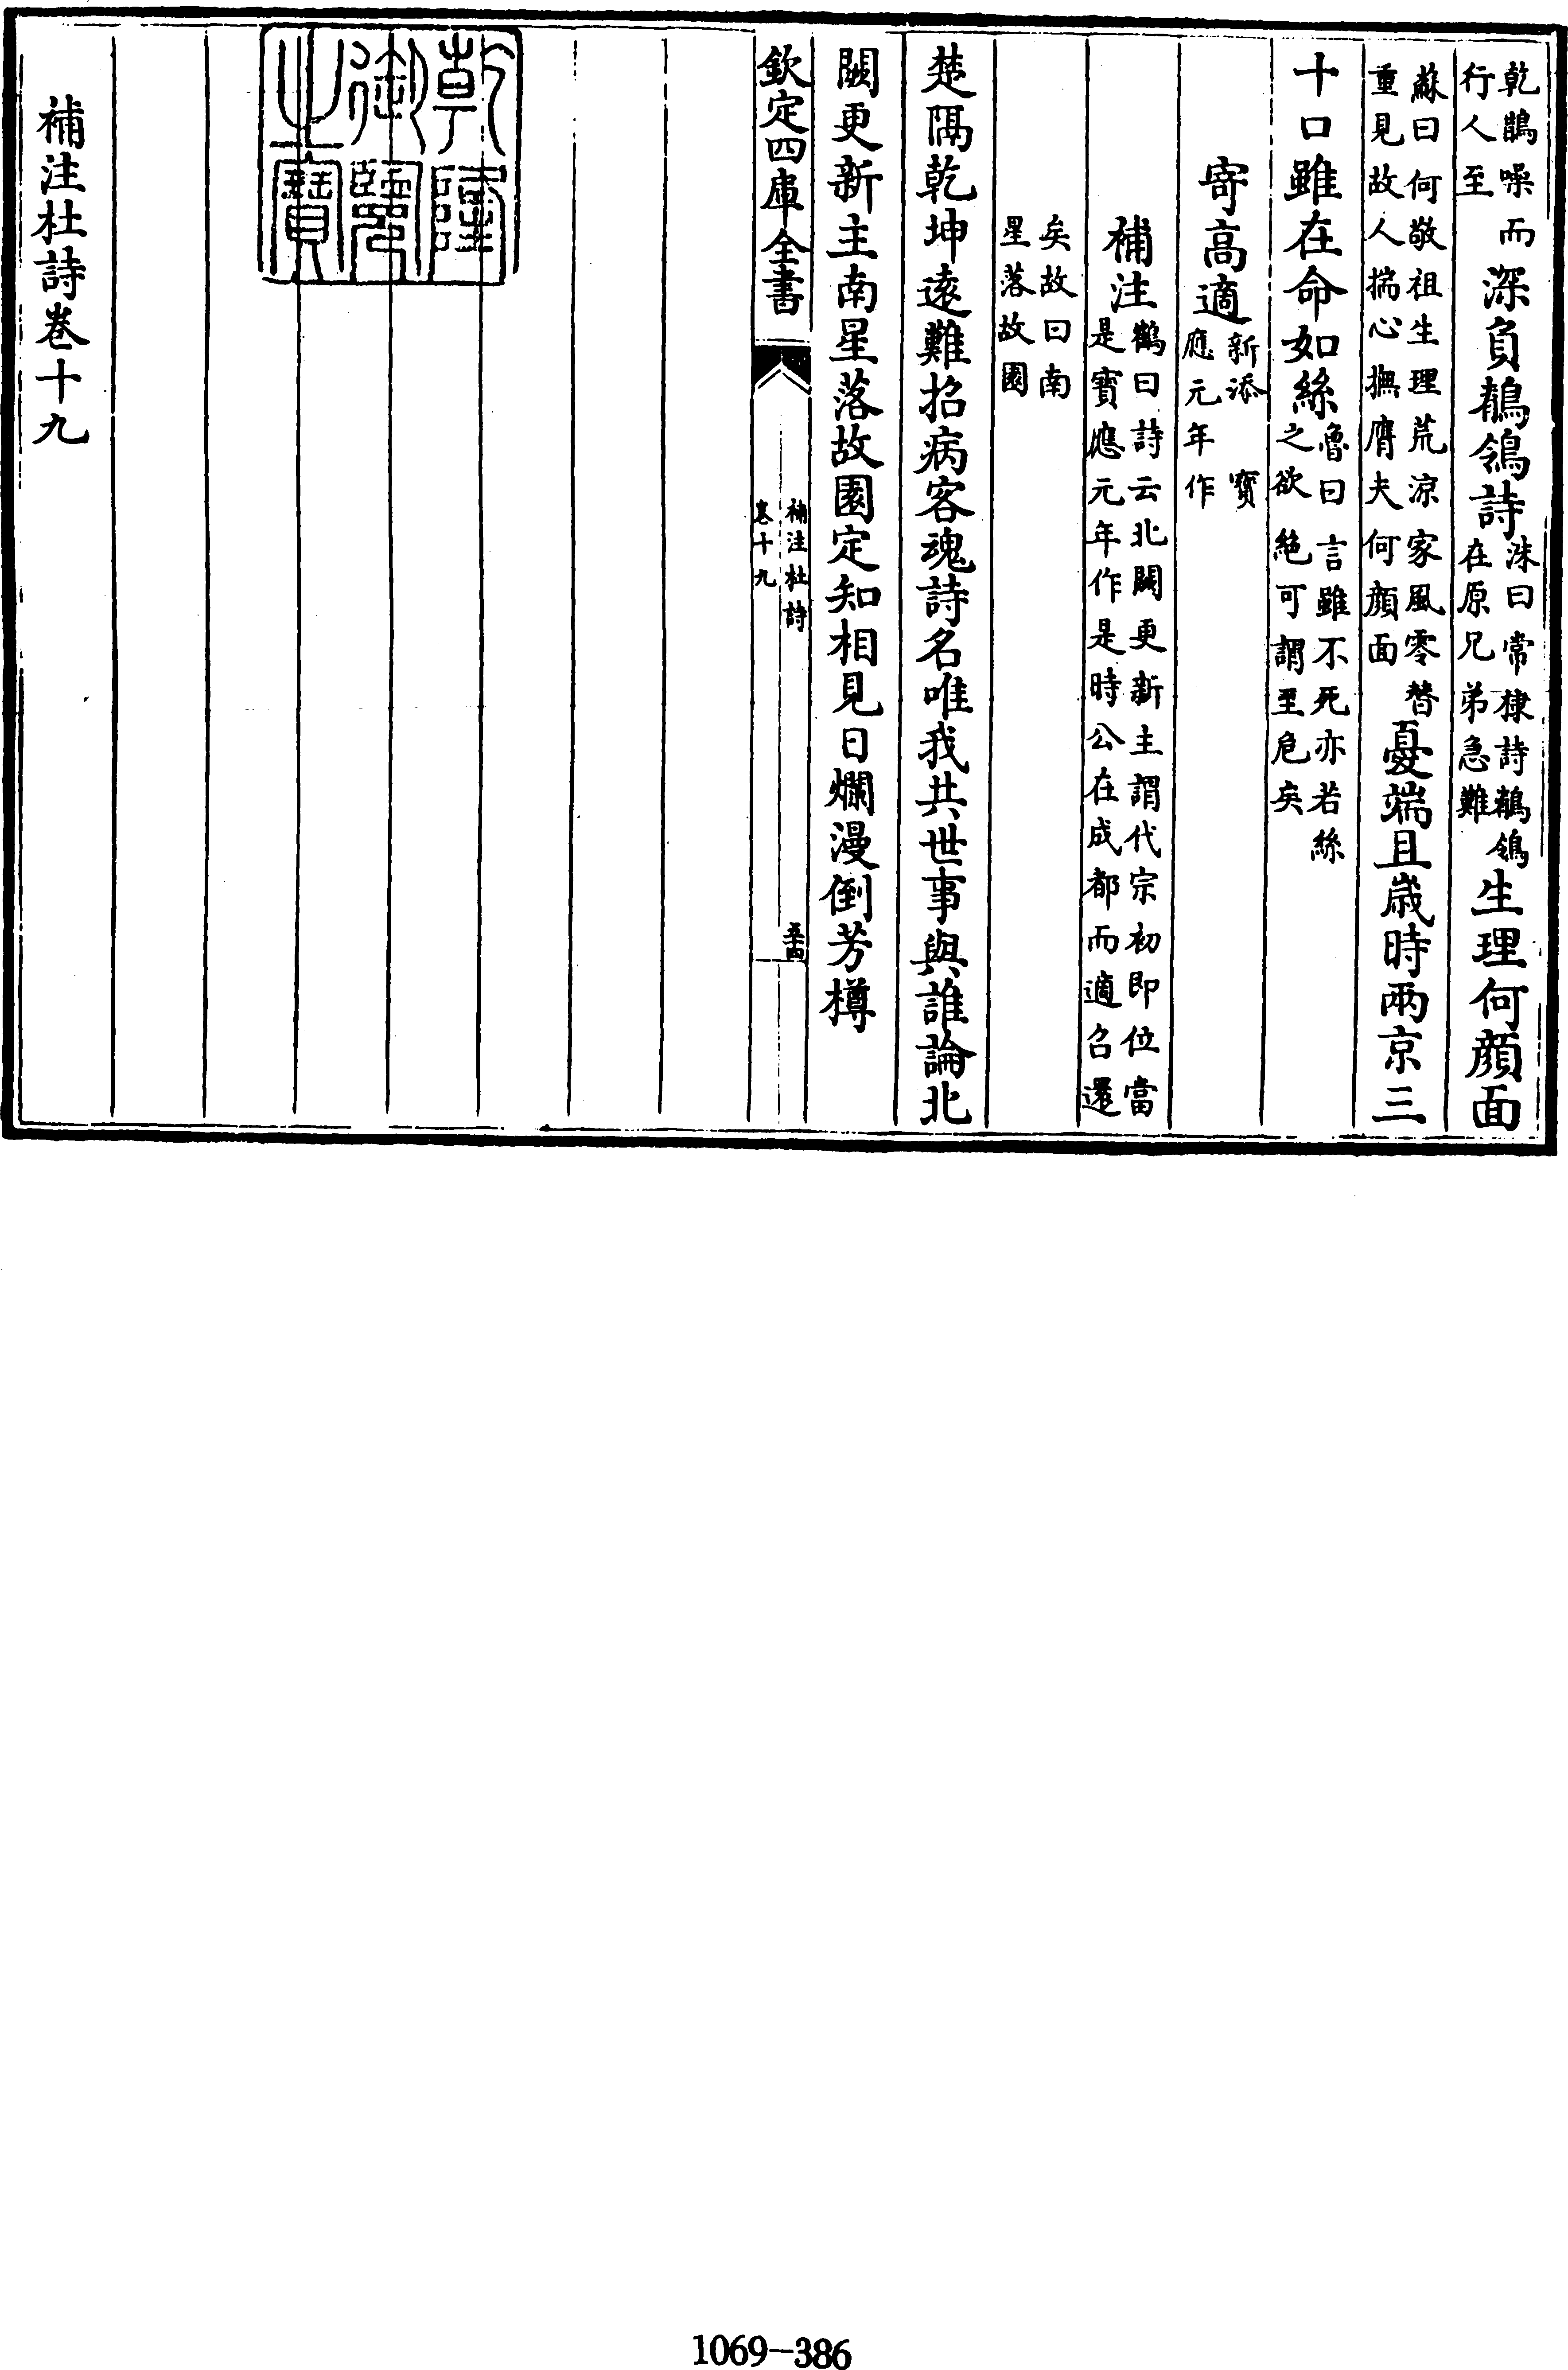 乾鵲噪而行人至深負鶺鴒詩洙曰常棣詩鶺鴒在原兄弟急難生理何顔面
蘇曰何敬祖生理荒涼家風零替重見故人揣心撫膺夫何顔面憂端且歳時兩京三
十口雖在命如絲魯曰言雖不死亦若絲之欲絶可謂至危矣
寄高適新添寳應元年作
補注鶴曰詩云北闕更新主謂代宗初即位當是寳應元年作是時公在成都而適召還
矣故曰南星落故園
楚隔乾坤遠難招病客魂詩名唯我共世事與誰論北
闕更新主南星落故園定知相見日爛漫倒芳樽
欽定四庫全書
補注杜詩
卷十九
五十四
乾隆御覽之寶
補注杜詩卷十九
1069-386